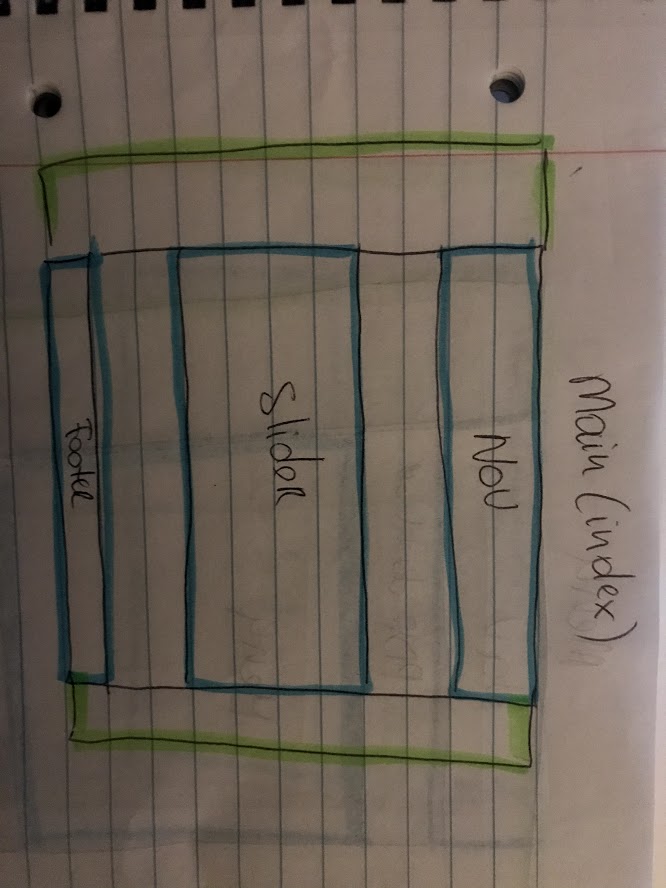 Main (index)
Nav
Slider
Footer